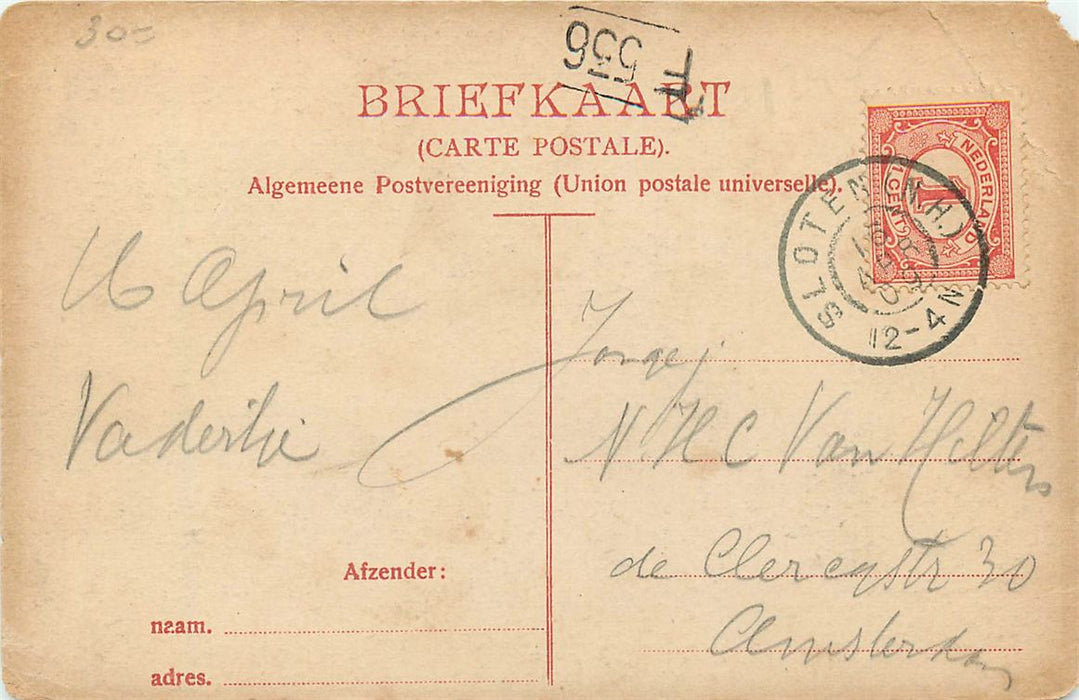 30=
F
536
BRIEFKAART
(CARTE POSTALE).
Algemeene Postvereeniging (Union postale universelle).
NEDERLAND
1
1 CENT
SLOTEN (N.H.)
12-4 N
16 April
Vadertje
Jongej
N H C Van
de Clercqstr 30
Amsterdam
Afzender:
naam.
adres.